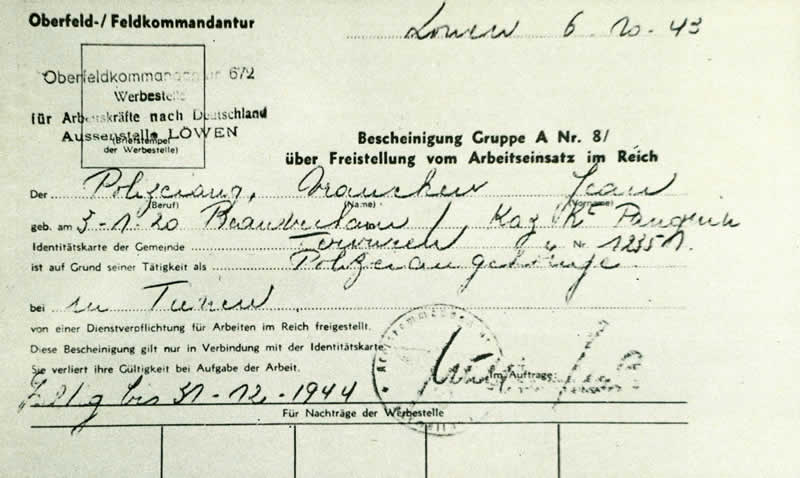 Oberfeld-/ Feldkommandantur
Löwen 6-10-43
Oberfeldkommandantur 672
Werbestelle
für Arbeitskräfte nach Deutschland
Aussenstelle LÖWEN
(Briefstempel
der Werbestelle)
Bescheinigung Gruppe A Nr. 8/
über Freistellung vom Arbeitseinsatz im Reich
Der Vrancken Jean
(Beruf) (Name) (Vorname)
geb. am 3-1-20
Identitätskarte der Gemeinde Tervuren Nr. 12351.
ist auf Grund seiner Tätigkeit als Polizeiangehöriger
bei in
von einer Dienstverpflichtung für Arbeiten im Reich freigestellt.
Diese Bescheinigung gilt nur in Verbindung mit der Identitätskarte
Sie verliert ihre Gültigkeit bei Aufgabe der Arbeit.
Im Auftrage:
bis 31-12-1944
Für Nachträge der Werbestelle